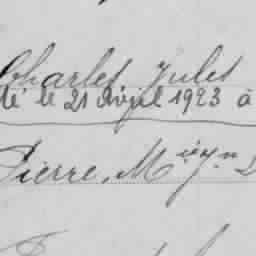 Charles Jules
le 21 Avril 1923 à
Pierre, M